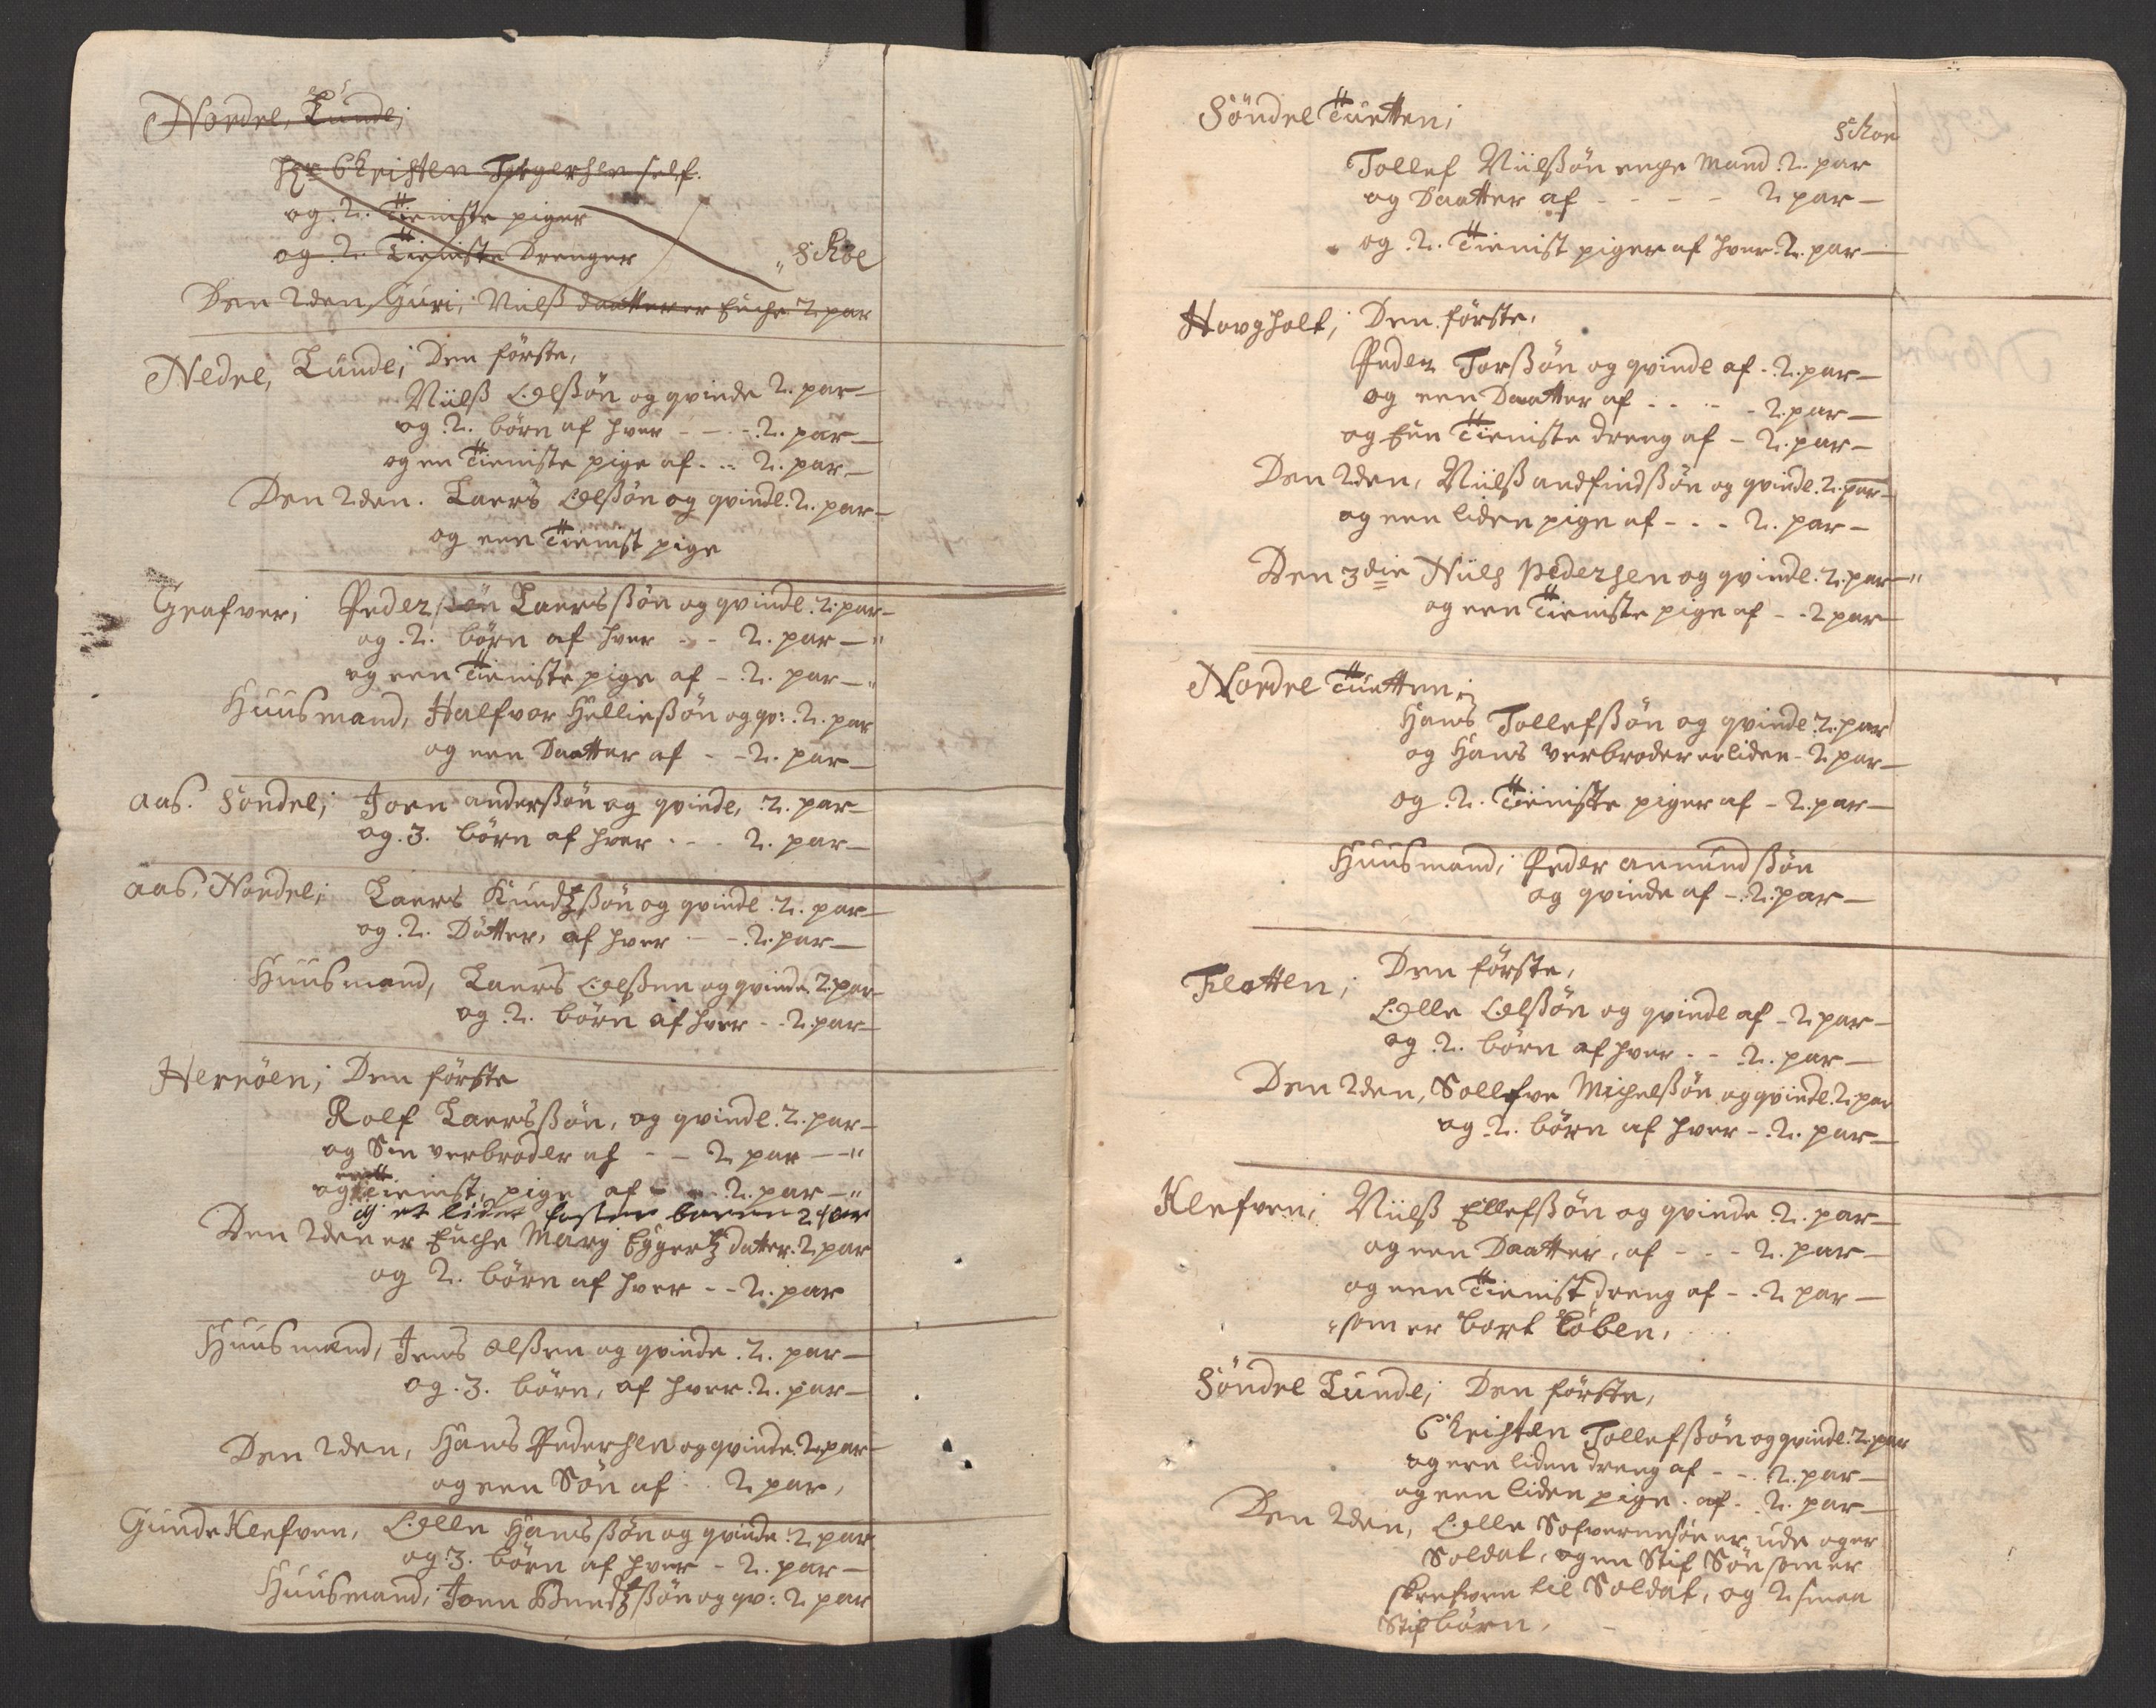 Nordre, Lunde;
Hr: Christen Torgersen self.
og .2. Tieniste piger
og .2. Tieniste Drenger
Skoe
Den 2den Guri, Niilß daatter er Enche 2 par
Nedre, Lunde; Den förste,
Niilß Olßön og qvinde 2. par
og .2. börn af hver - - - 2. par
og en Tieniste pige af - - 2. par
Den 2den. Laers Olßön og qvinde. 2. par
og een Tienist pige
Grafver; Peder Laersßön og qvinde .2. par
og .2. börn af hver - - 2. par
og een Tieniste pige af - 2. par
Huusmand, Halfvor Helließön og qv: .2. par
og een Daatter af - - 2. par
Aas. Söndre; Joen anderßön og qvinde, .2. par
og .3. börn af hver - - - 2. par
Aas, Nordre; Laers Knudtzßön og qvinde .2. par
og .2. Dötter, af hver - - 2. par
Huusmand, Laers Olßen og qvinde 2. par
og .2. börn af hver - - 2. par
Hernöen; Den förste
Rolf Laersßön, og qvinde .2. par
og Sin verbroder af - - 2 par
og een Tienist, pige af - - 2. par
og et lidet foster barn 2 par
Den 2den er Enche Marj Eggertz datter. 2 par
og 2. börn af hver - - 2. par
Huusmænd, Jens Olßen og qvinde .2. par
og .3. börn, af hver. 2. par
Den 2den, Hans Pedersen og qvinde. 2. par
og een Sön af - - 2 par,
Gunde Klefven, Olle Hansßön og qvinde 2 par
og .3. börn af hver - 2. par
Huusmand, Joen Bendtzßön og qv: 2 par
Söndre Tuetten;
Skoe
Tollef Niilßön enche Mand 2. par
og Daatter af - - - - 2 par
og .2. Tienist piger af hver. 2. par
Hovgholt; Den förste,
Peder Torßön og qvinde af - 2. par
og een Daatter af - - - - 2. par
og Een Tieniste dreng af - 2. par
Den 2den, Niilß andfindßön og qvinde. 2. par
og een liden pige af - - - 2. par
Den 3die Niils Pedersen og qvinde. 2. par
og een Tieniste pige af - - 2 par
Nordre Tuetten;
Hans Tollefßön og qvinde 2. par
og Hans verbroder er liden - 2 par
og .2. Tieniste piger af - 2. par
Huusmand; Peder amundßön
og qvinde af - 2. par
Flatten; Den förste,
Olle Olßön og qvinde af - 2 par
og .2. börn af hver - - 2. par
Den 2den, Sollefve Michelßön og qvinde. 2. par
og .2. börn af hver - 2. par
Klefven; Niilß Ellefßön og qvinde .2. par
og een Daatter, af - - - 2. par
og een Tienist dreng af - - 2 par
som er bort Löben,
Söndre Lunde; Den förste,
Christen Tollefßön og qvinde. 2. par
og een liden dreng af - - 2. par
og een liden pige. af - 2. par
Den 2den, Olle Sofvernsön er ude og er
Soldat, og en Stif Sön som er
skrefven til Soldat, og 2 smaa
Stif börn,